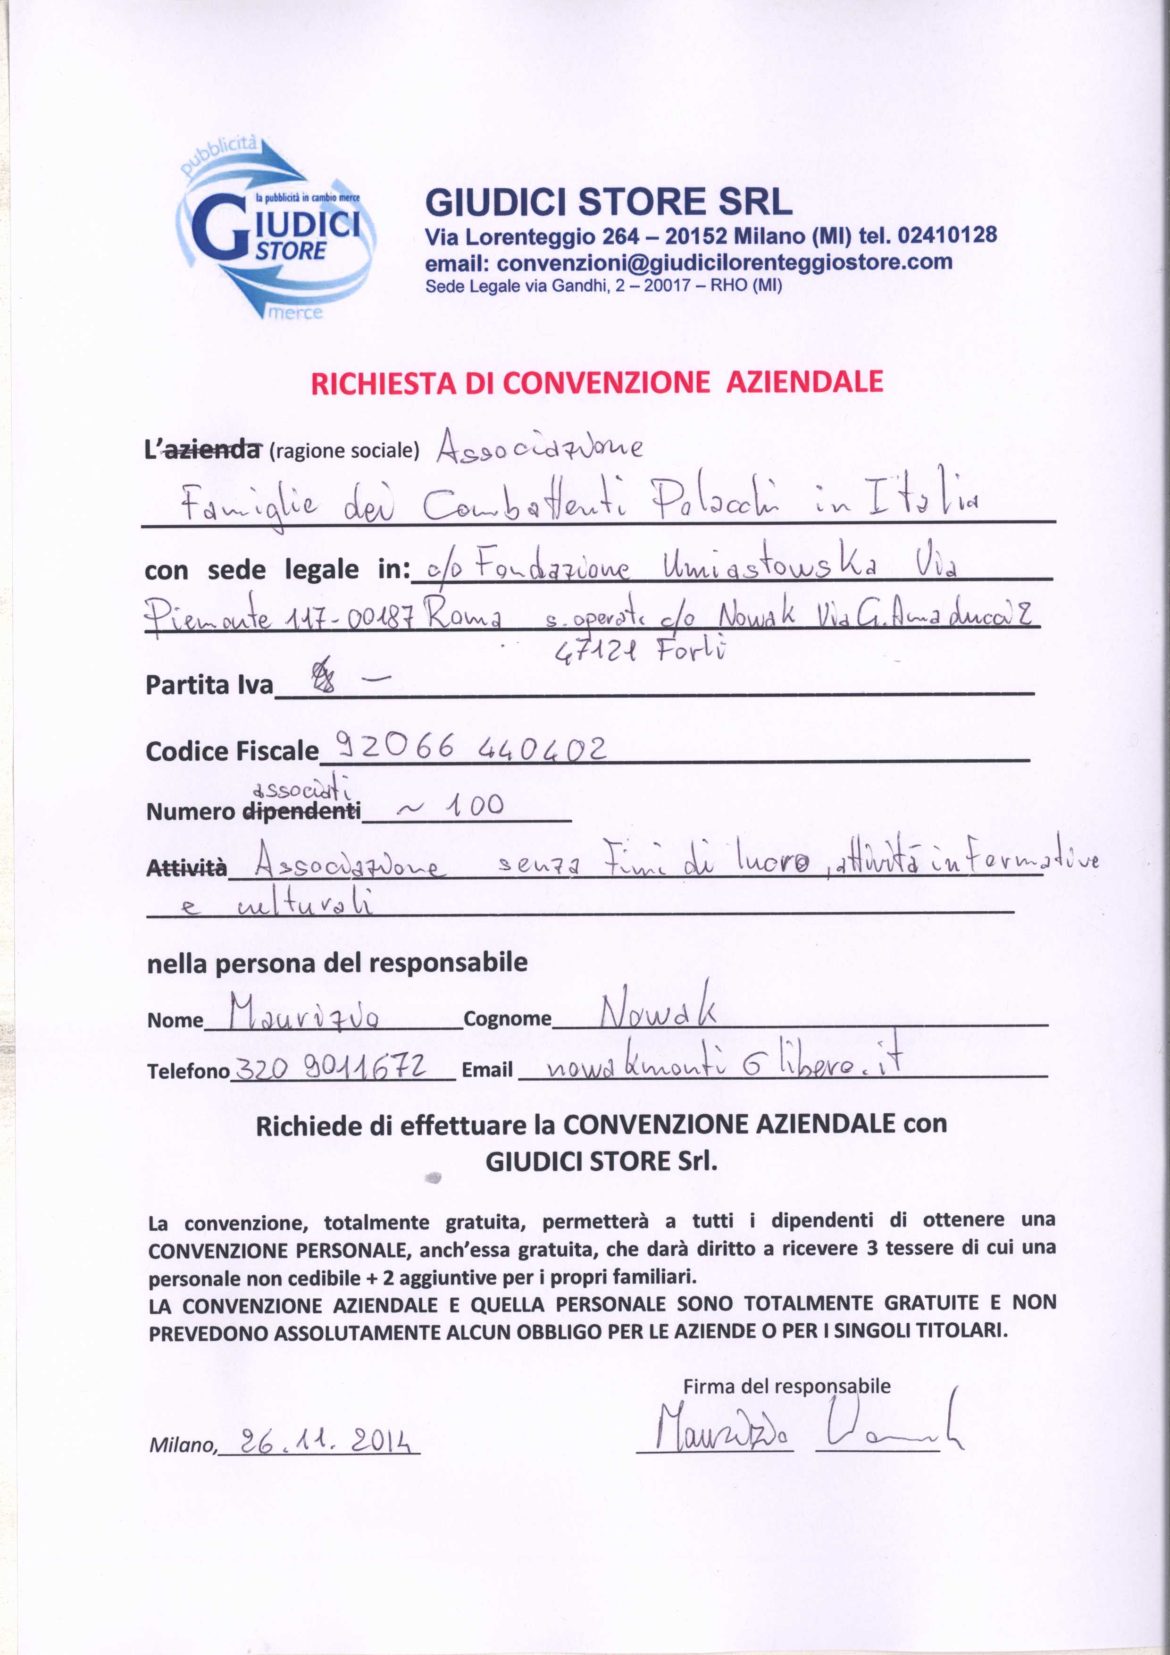 pubblicità
la pubblicità in cambio merce
GIUDICI
STORE
merce
GIUDICI STORE SRL
Via Lorenteggio 264 – 20152 Milano (MI) tel. 02410128
email: convenzioni@giudicilorenteggiostore.com
Sede Legale via Gandhi, 2 – 20017 – RHO (MI)
RICHIESTA DI CONVENZIONE AZIENDALE
L'azienda (ragione sociale) Associazione
Famiglie dei Combattenti Polacchi in Italia
con sede legale in: c/o Fondazione Umiastowska Via
Piemonte 117-00187 Roma s. operat. c/o Nowak Via G. Amaducci 2
47121 Forlì
Partita Iva –
Codice Fiscale 92066 440402
associati
Numero dipendenti ~ 100
Attività Associazione senza fini di lucro, attività informative
e culturali
nella persona del responsabile
Nome Maurizio Cognome Nowak
Telefono 320 9011672 Email nowakmonti @ libero.it
Richiede di effettuare la CONVENZIONE AZIENDALE con
GIUDICI STORE Srl.
La convenzione, totalmente gratuita, permetterà a tutti i dipendenti di ottenere una
CONVENZIONE PERSONALE, anch'essa gratuita, che darà diritto a ricevere 3 tessere di cui una
personale non cedibile + 2 aggiuntive per i propri familiari.
LA CONVENZIONE AZIENDALE E QUELLA PERSONALE SONO TOTALMENTE GRATUITE E NON
PREVEDONO ASSOLUTAMENTE ALCUN OBBLIGO PER LE AZIENDE O PER I SINGOLI TITOLARI.
Firma del responsabile
Milano, 26.11.2014 Maurizio Nowak